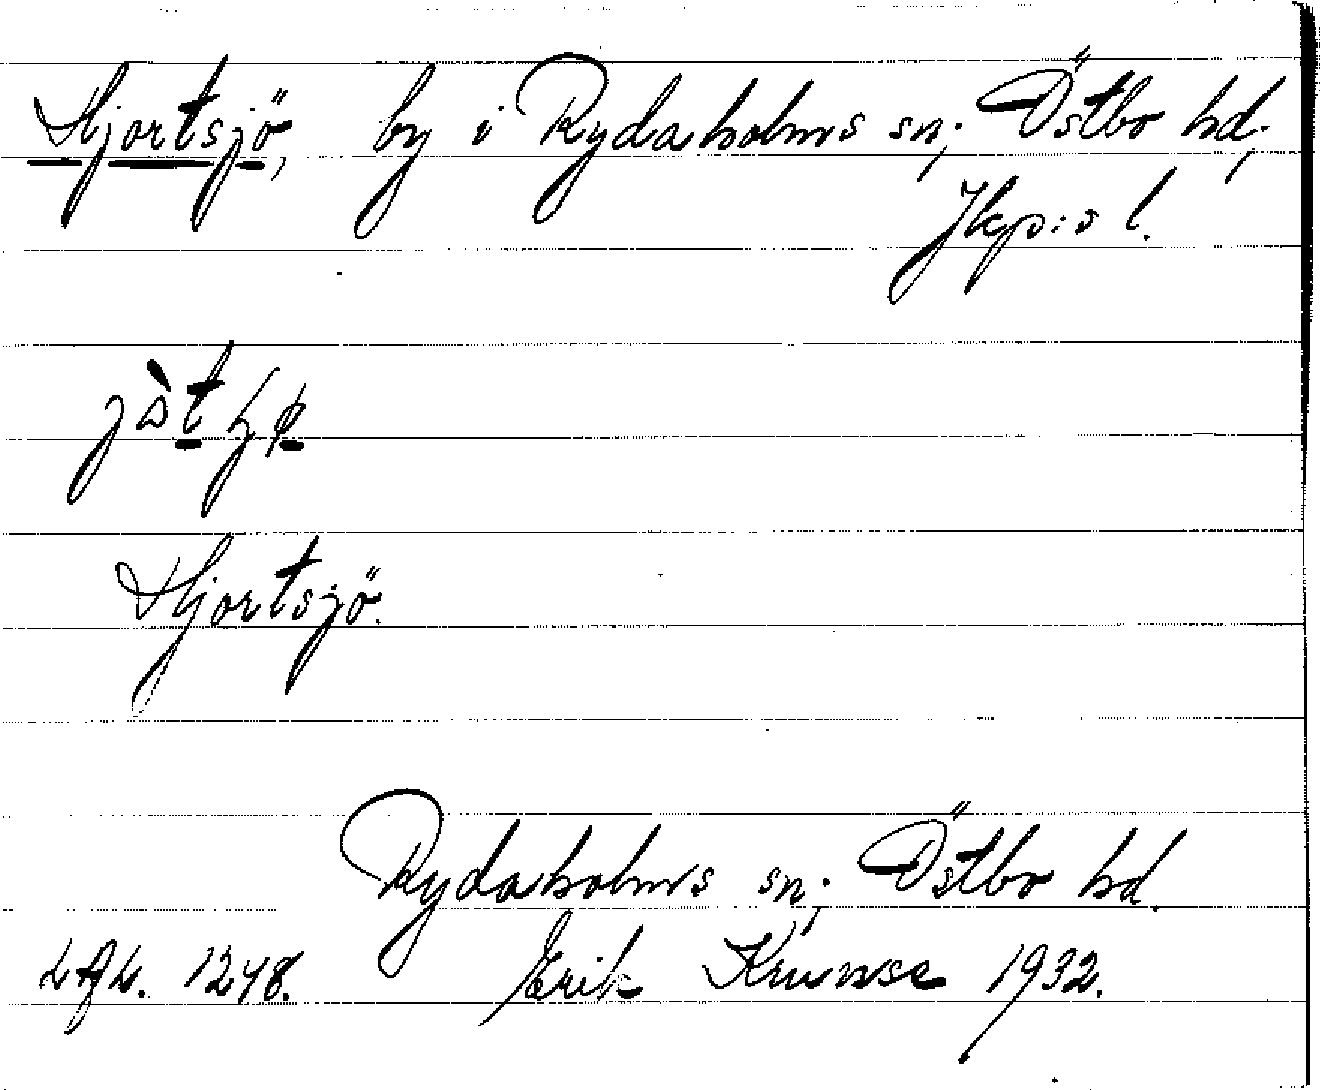 Hjortsjö, by i Rydaholms sn, Östbo hd,
Jkp:s l.
Hjortsjö.
Rydaholms sn, Östbo hd.
1248. Erik 1932.